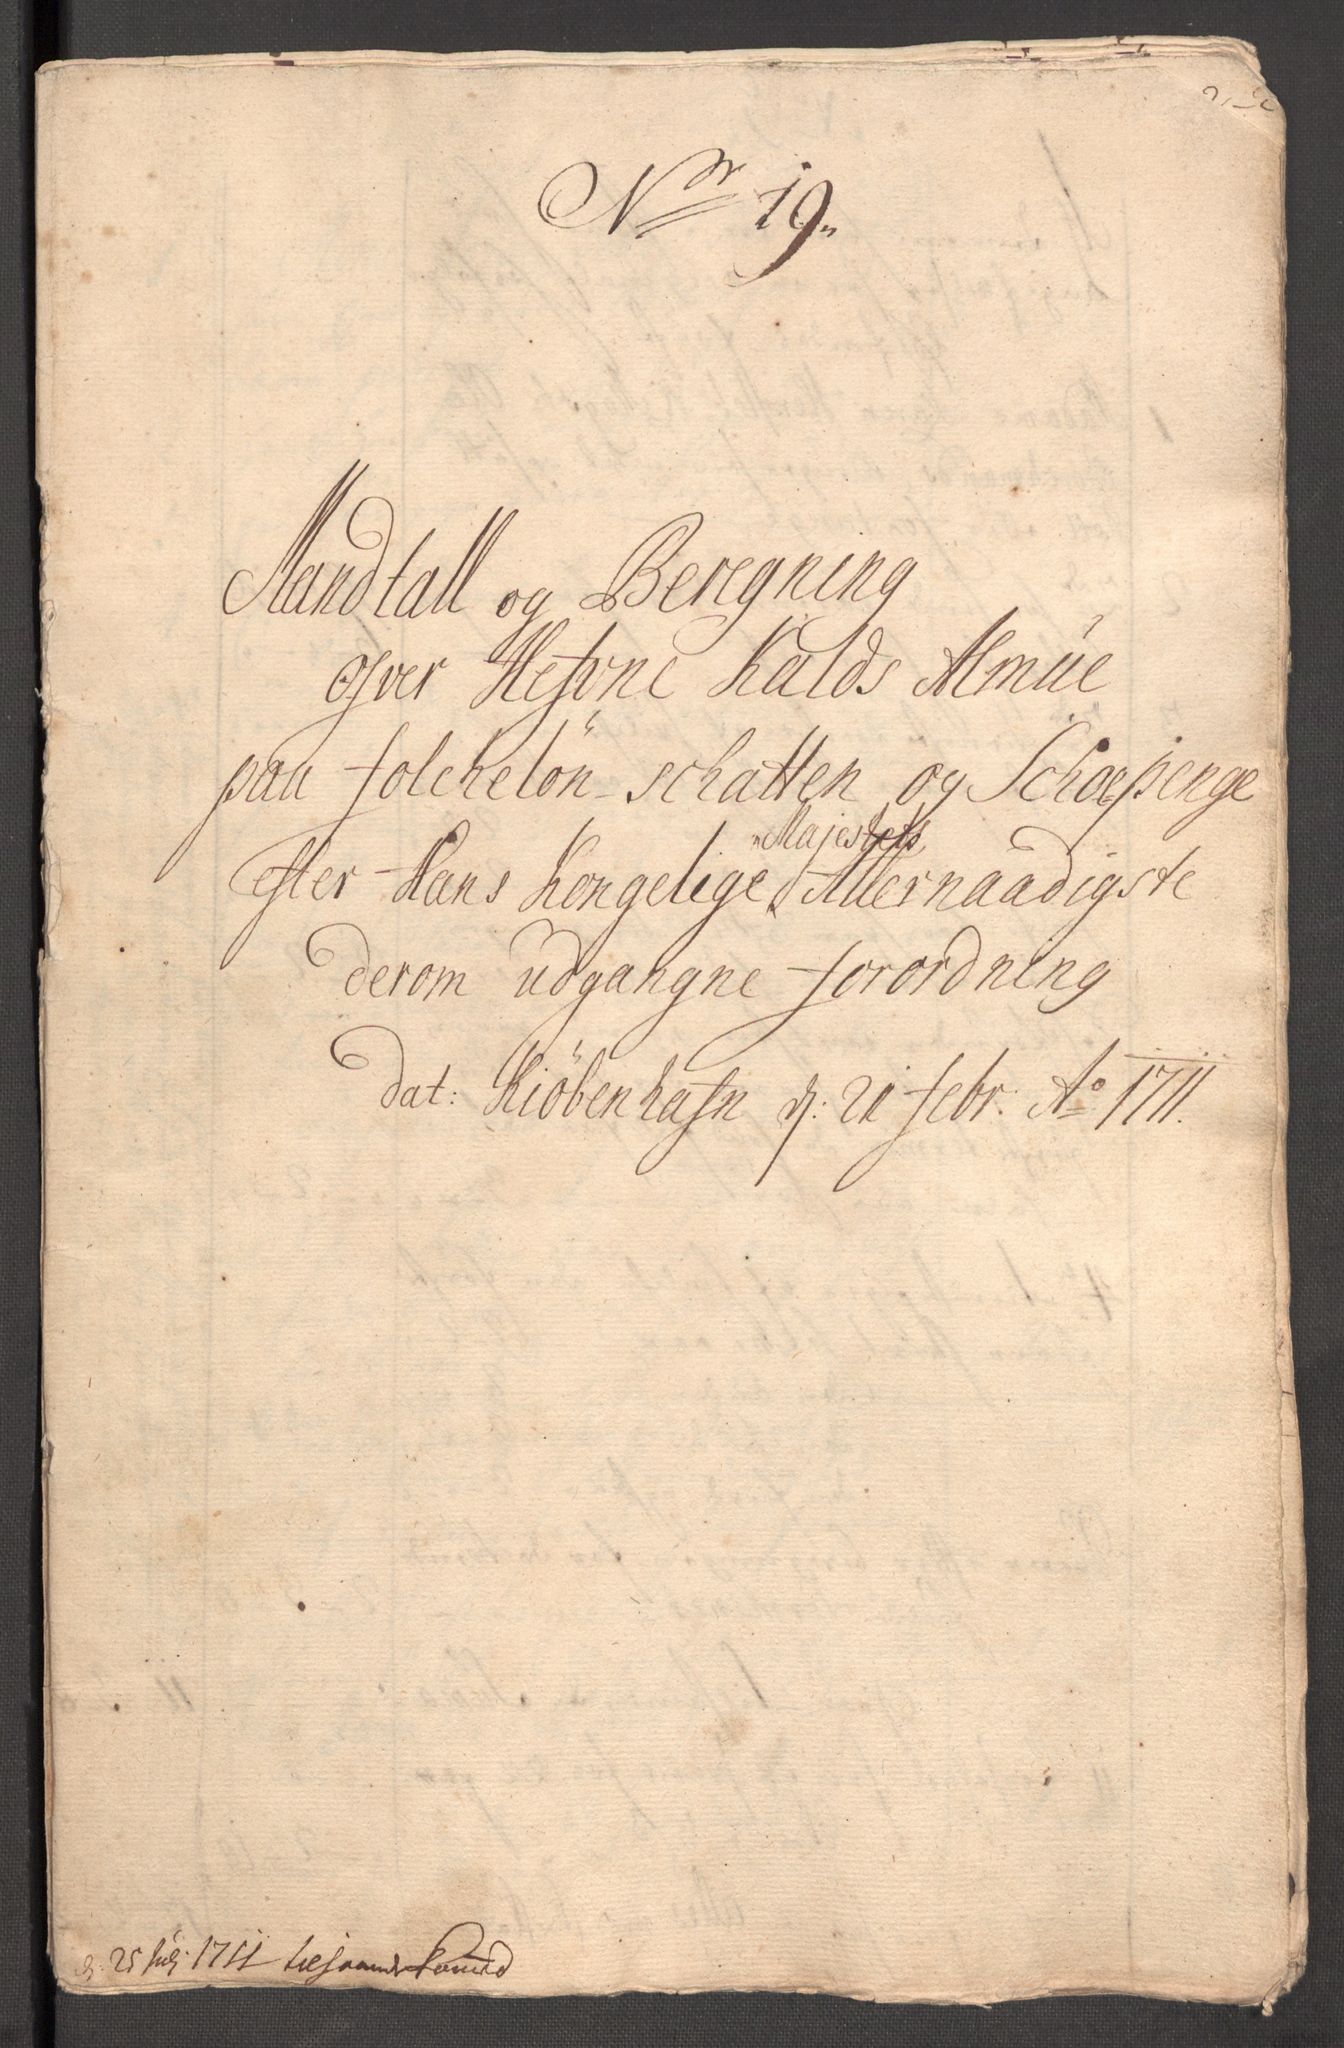 Nr 19.
Mandtall og Beregning
ofver Hefvne Kalds Almüe
paa folckelön-schatten og Schoepenge
efter Hans Kongelige Majestets Allernaadigste
derom udgangne forordning
dat: Kiöbenhafn d: 21 febr: Ao 1711.
d: 25 Julj 1711